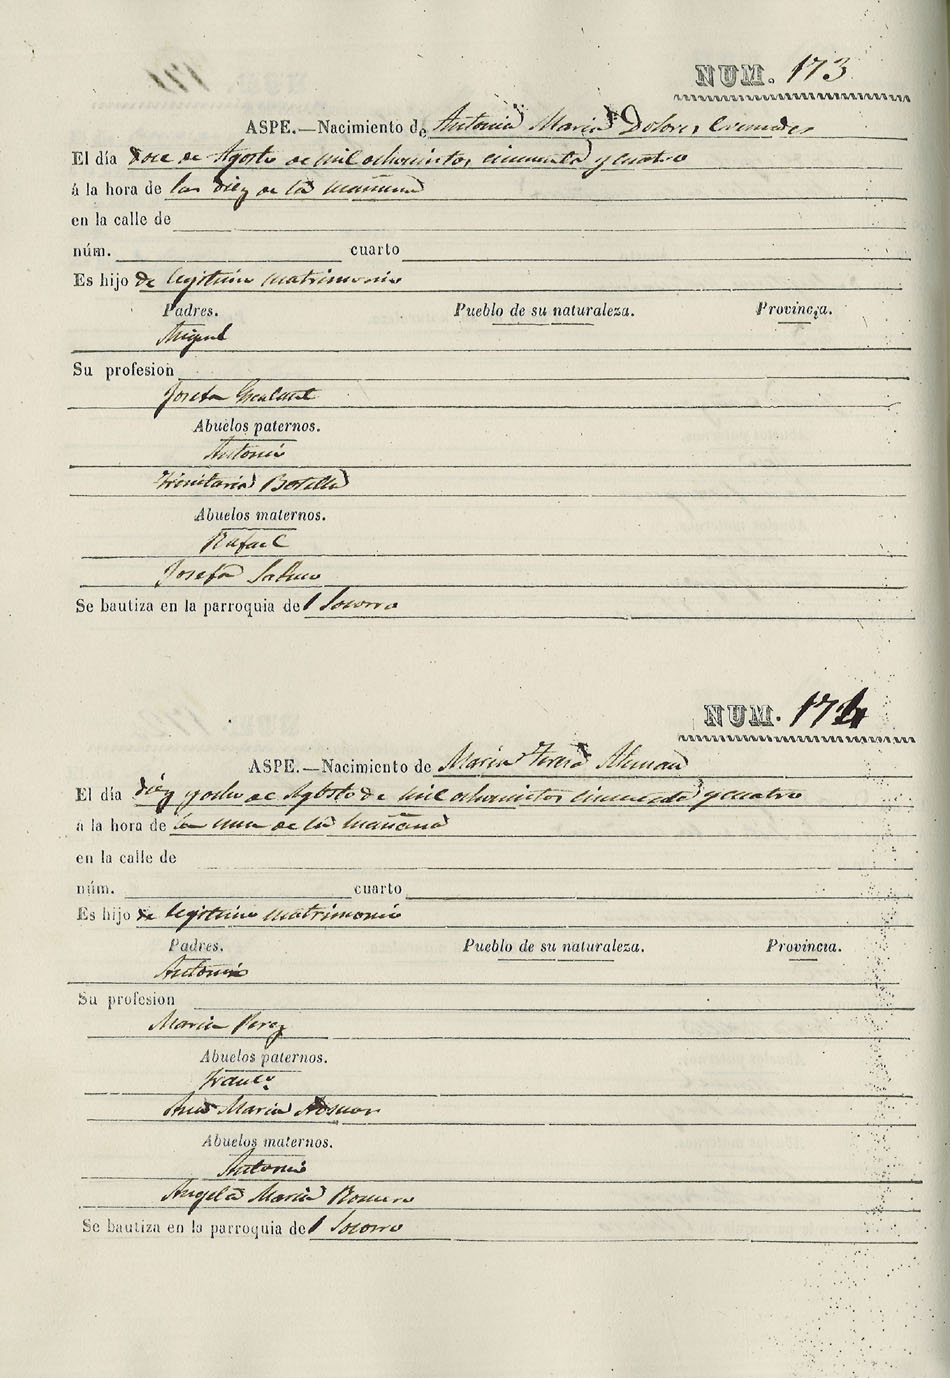 NUM. 173
ASPE.—Nacimiento de Antonia Maria Dolores Cremades
El día doce de Agosto de mil ochocientos cincuenta y cuatro
á la hora de las diez de la mañana
en la calle de
núm. cuarto
Es hijo de legitimo matrimonio
Padres. Pueblo de su naturaleza. Provincia.
Miguel
Su profesion
Josefa
Abuelos paternos.
Antonio
Trinitaria Botella
Abuelos maternos.
Rafael
Josefa
Se bautiza en la parroquia del Socorro
NUM. 174
ASPE.—Nacimiento de Maria Teresa Aleman
El día diez y ocho de Agosto de mil ochocientos cincuenta y cuatro
á la hora de la una de la mañana
en la calle de
núm. cuarto
Es hijo de legitimo matrimonio
Padres. Pueblo de su naturaleza. Provincia.
Antonio
Su profesion
Maria Perez
Abuelos paternos.
Franco.
Ana Maria
Abuelos maternos.
Antonio
Angela Maria Romero
Se bautiza en la parroquia del Socorro